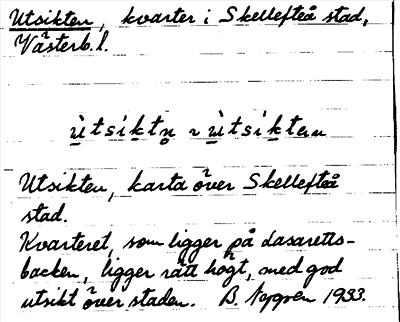 Utsikten, kvarter i Skellefteå stad,
Västerb. l.
ùtsiktn̥ ~ ùtsiktən
Utsikten, karta över Skellefteå
stad.
Kvarteret, som ligger på Lasaretts-
backen, ligger rätt högt, med god
utsikt över staden. B. Nygren 1933.